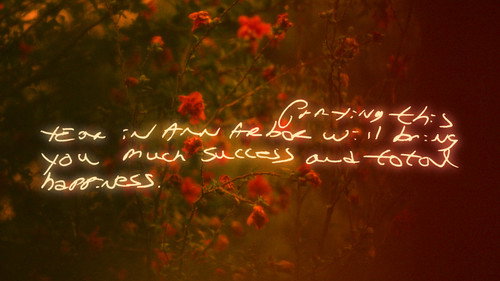 Praying this
year in Ann Arbor will bring
you much success and total
happiness.